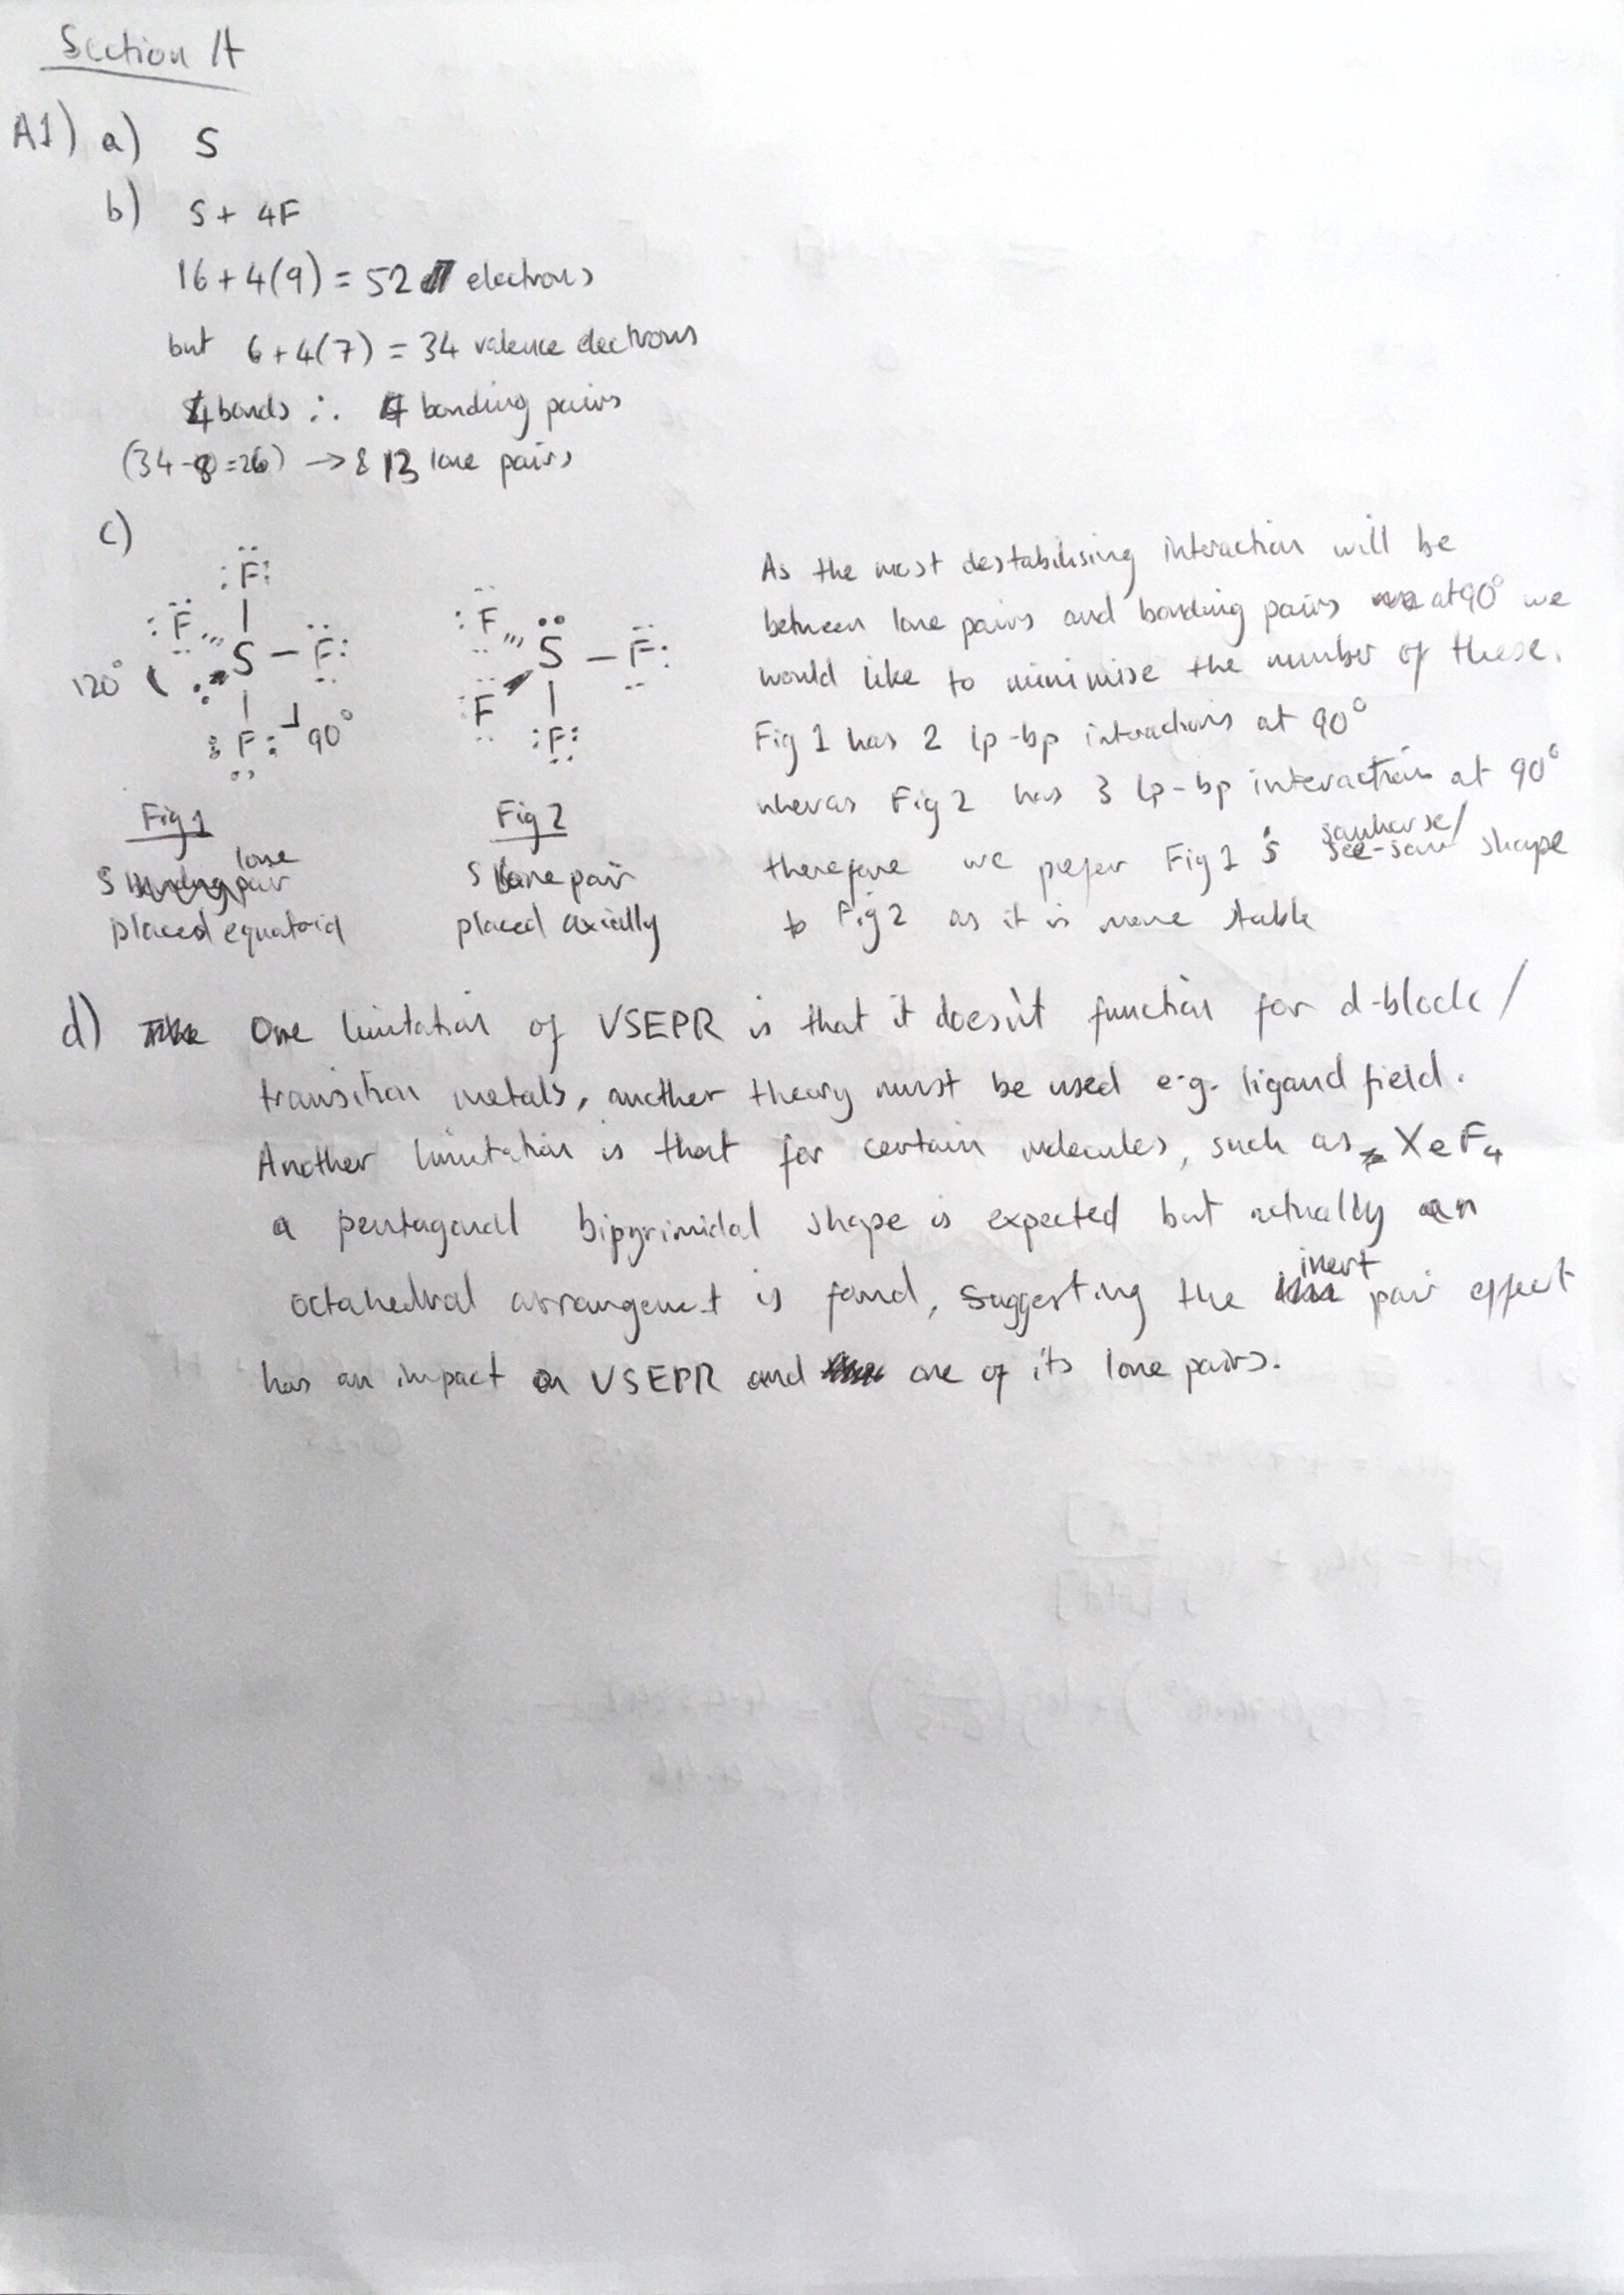 Section A
A1) a) S
b) S + 4F
16 + 4(9) = 52 electrons
but 6 + 4(7) = 34 valence electrons
4 bonds ∴ 4 bonding pairs
(34-8=26) → 13 lone pairs
c)
F F S F F 120° 90°
Fig 1
S lone pair
placed equatorial
F S F F F
Fig 2
S lone pair
placed axially
As the most destabilising interaction will be
between lone pairs and bonding pairs at 90° we
would like to minimise the number of these.
Fig 1 has 2 lp-bp interactions at 90°
wheras Fig 2 has 3 lp-bp interactions at 90°
therefore we prefer Fig 1's sawhorse/
see-saw shape
to Fig 2 as it is more stable
d) One limitation of VSEPR is that it doesn't function for d-block/
transition metals, another theory must be used e.g. ligand field.
Another limitation is that for certain molecules, such as XeF4
a pentagonal bipyrimidal shape is expected but actually an
octahedral arrangement is found, suggesting the inert pair effect
has an impact on VSEPR and one of its lone pairs.